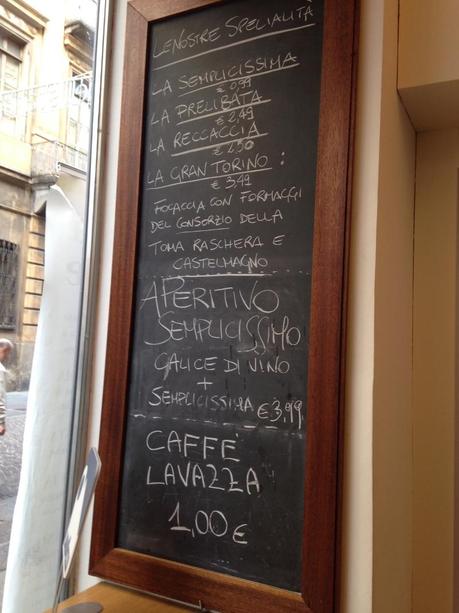 LE NOSTRE SPECIALITÀ
LA SEMPLICISSIMA
€ 0,99
LA PRELIBATA
€ 2,49
LA RECCACCIA
€ 2,50
LA GRAN TORINO :
€ 3,49
FOCACCIA CON FORMAGGI
DEL CONSORZIO DELLA
TOMA RASCHERA E
CASTELMAGNO
APERITIVO
SEMPLICISSIMO
CALICE DI VINO
+
SEMPLICISSIMA €3,99
CAFFÈ
LAVAZZA
1,00€